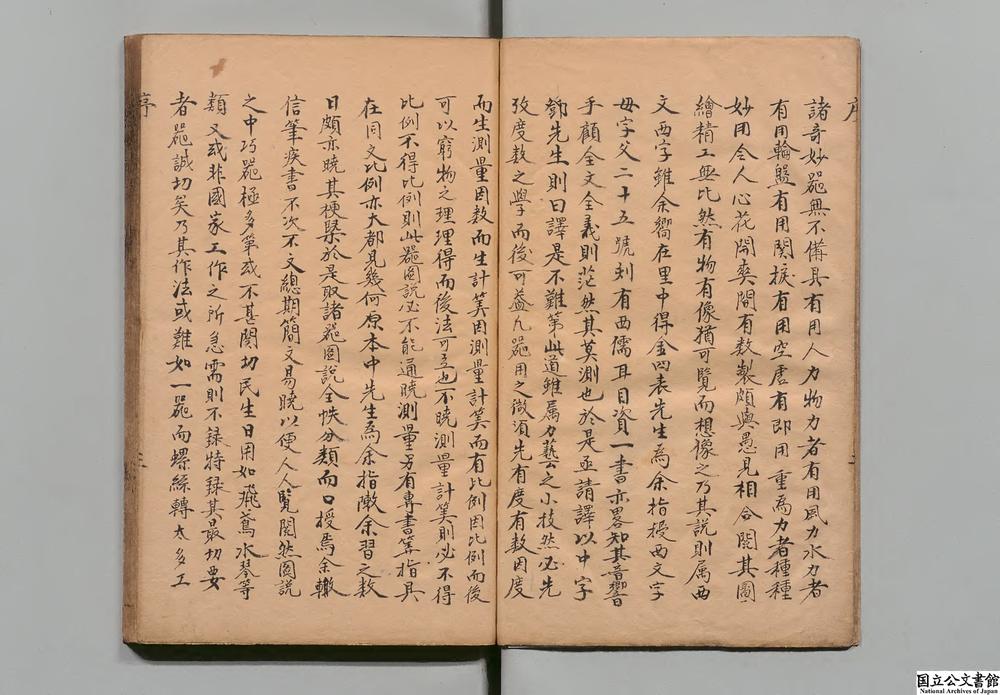 序
諸奇妙噐無不備具有用人力物力者有用風力水力者
有用輪盤有用関捩有用空虛有即用重為力者種種
妙用令人心花開爽間有数製頗與愚見相合閱其圖
繪精工無比然有物有像猶可覽而想像之乃其說則属西
文西字雖余嚮在里中得金四表先生為余指授西文字
母字父二十五號刻有西儒耳目資一書亦畧知其音響
乎顧全文全義則茫然其莫測也於是亟請譯以中字
鄧先生則曰譯是不難第此道雖属力藝之小技然必先
攷度数之學而後可盖凡噐用之微湏先有度有数因度
而生測量因数而生計筭因測量計筭而有比例因比例而後
可以窮物之理理得而後法可立也不曉測量計筭則必不得
比例不得比例則此噐圖說必不能通曉測量另有專書筭指具
在同文比例亦大都見幾何原本中先生為余指陳余習之数
日頗亦曉其梗槩於是取諸噐圖說全帙分類而口授焉余輙
信筆疾書不次不文總期簡文易曉以便人人覽閱然圖說
之中巧噐極多第或不甚関切民生日用如飛鳶水琴等
類又或非國家工作之所急需則不錄特錄其最切要
者噐誠切矣乃其作法或難如一噐而螺絲轉太多工
序
三
国立公文書館
National Archives of Japan